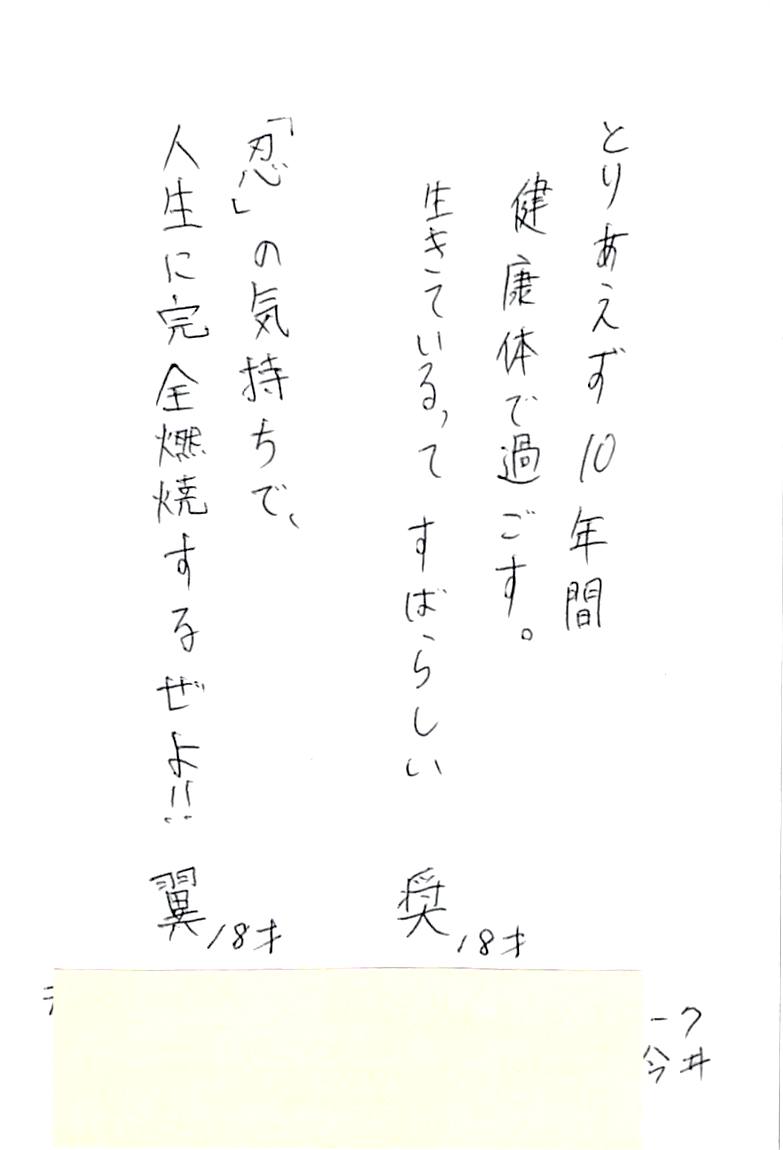 とりあえず10年間
健康体で過ごす。
生きている，って すばらしい
奨 18才
「忍」の気持ちで、
人生に完全燃焼するぜよ!!
翼 18才
ーク
今井